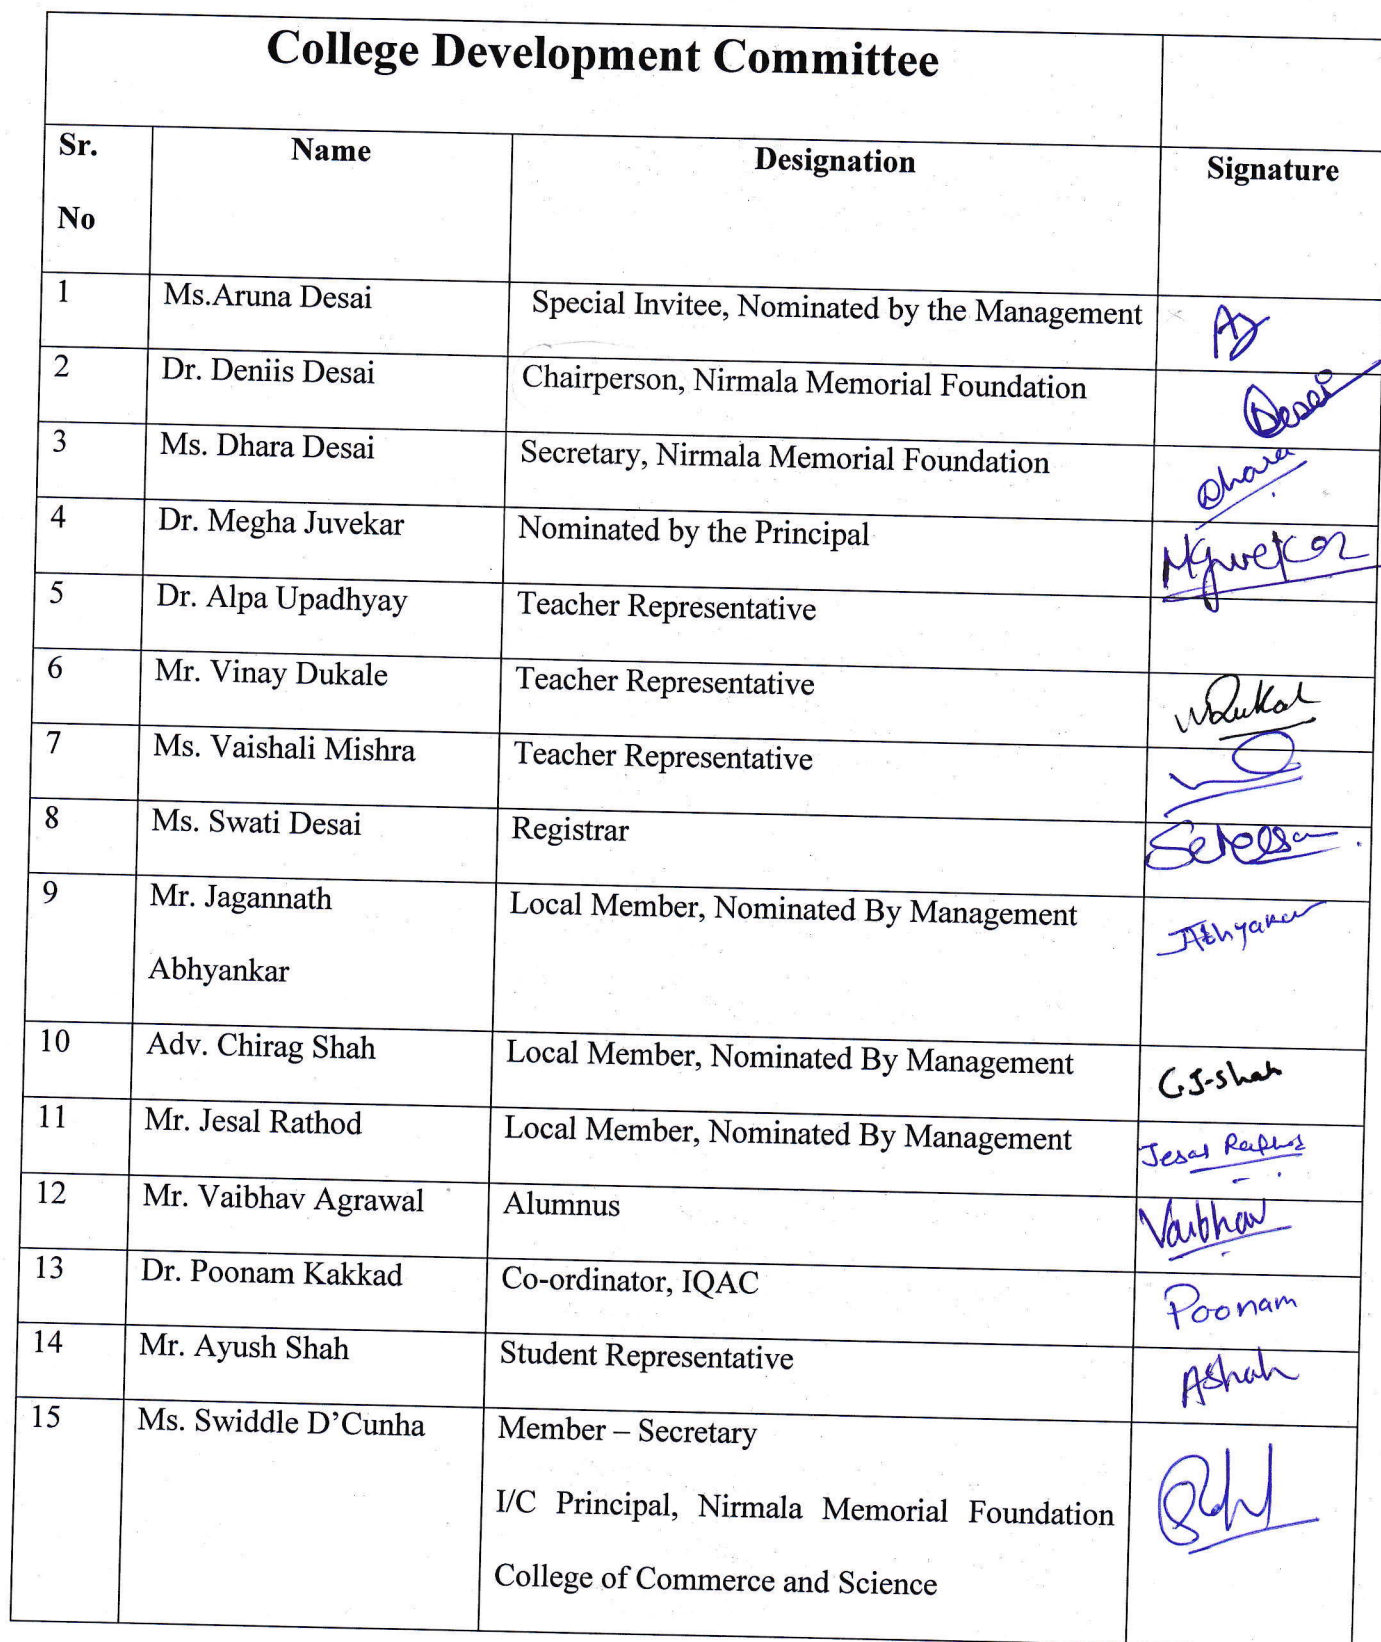 College Development Committee
Sr. No Name Designation Signature
1 Ms.Aruna Desai Special Invitee, Nominated by the Management
2 Dr. Deniis Desai Chairperson, Nirmala Memorial Foundation Desai
3 Ms. Dhara Desai Secretary, Nirmala Memorial Foundation Dhara
4 Dr. Megha Juvekar Nominated by the Principal
5 Dr. Alpa Upadhyay Teacher Representative
6 Mr. Vinay Dukale Teacher Representative
7 Ms. Vaishali Mishra Teacher Representative
8 Ms. Swati Desai Registrar
9 Mr. Jagannath Local Member, Nominated By Management
Abhyankar
10 Adv. Chirag Shah Local Member, Nominated By Management C.J-Shah
11 Mr. Jesal Rathod Local Member, Nominated By Management Jesal
12 Mr. Vaibhav Agrawal Alumnus Vaibhav
13 Dr. Poonam Kakkad Co-ordinator, IQAC Poonam
14 Mr. Ayush Shah Student Representative AShah
15 Ms. Swiddle D’Cunha Member – Secretary
I/C Principal, Nirmala Memorial Foundation
College of Commerce and Science